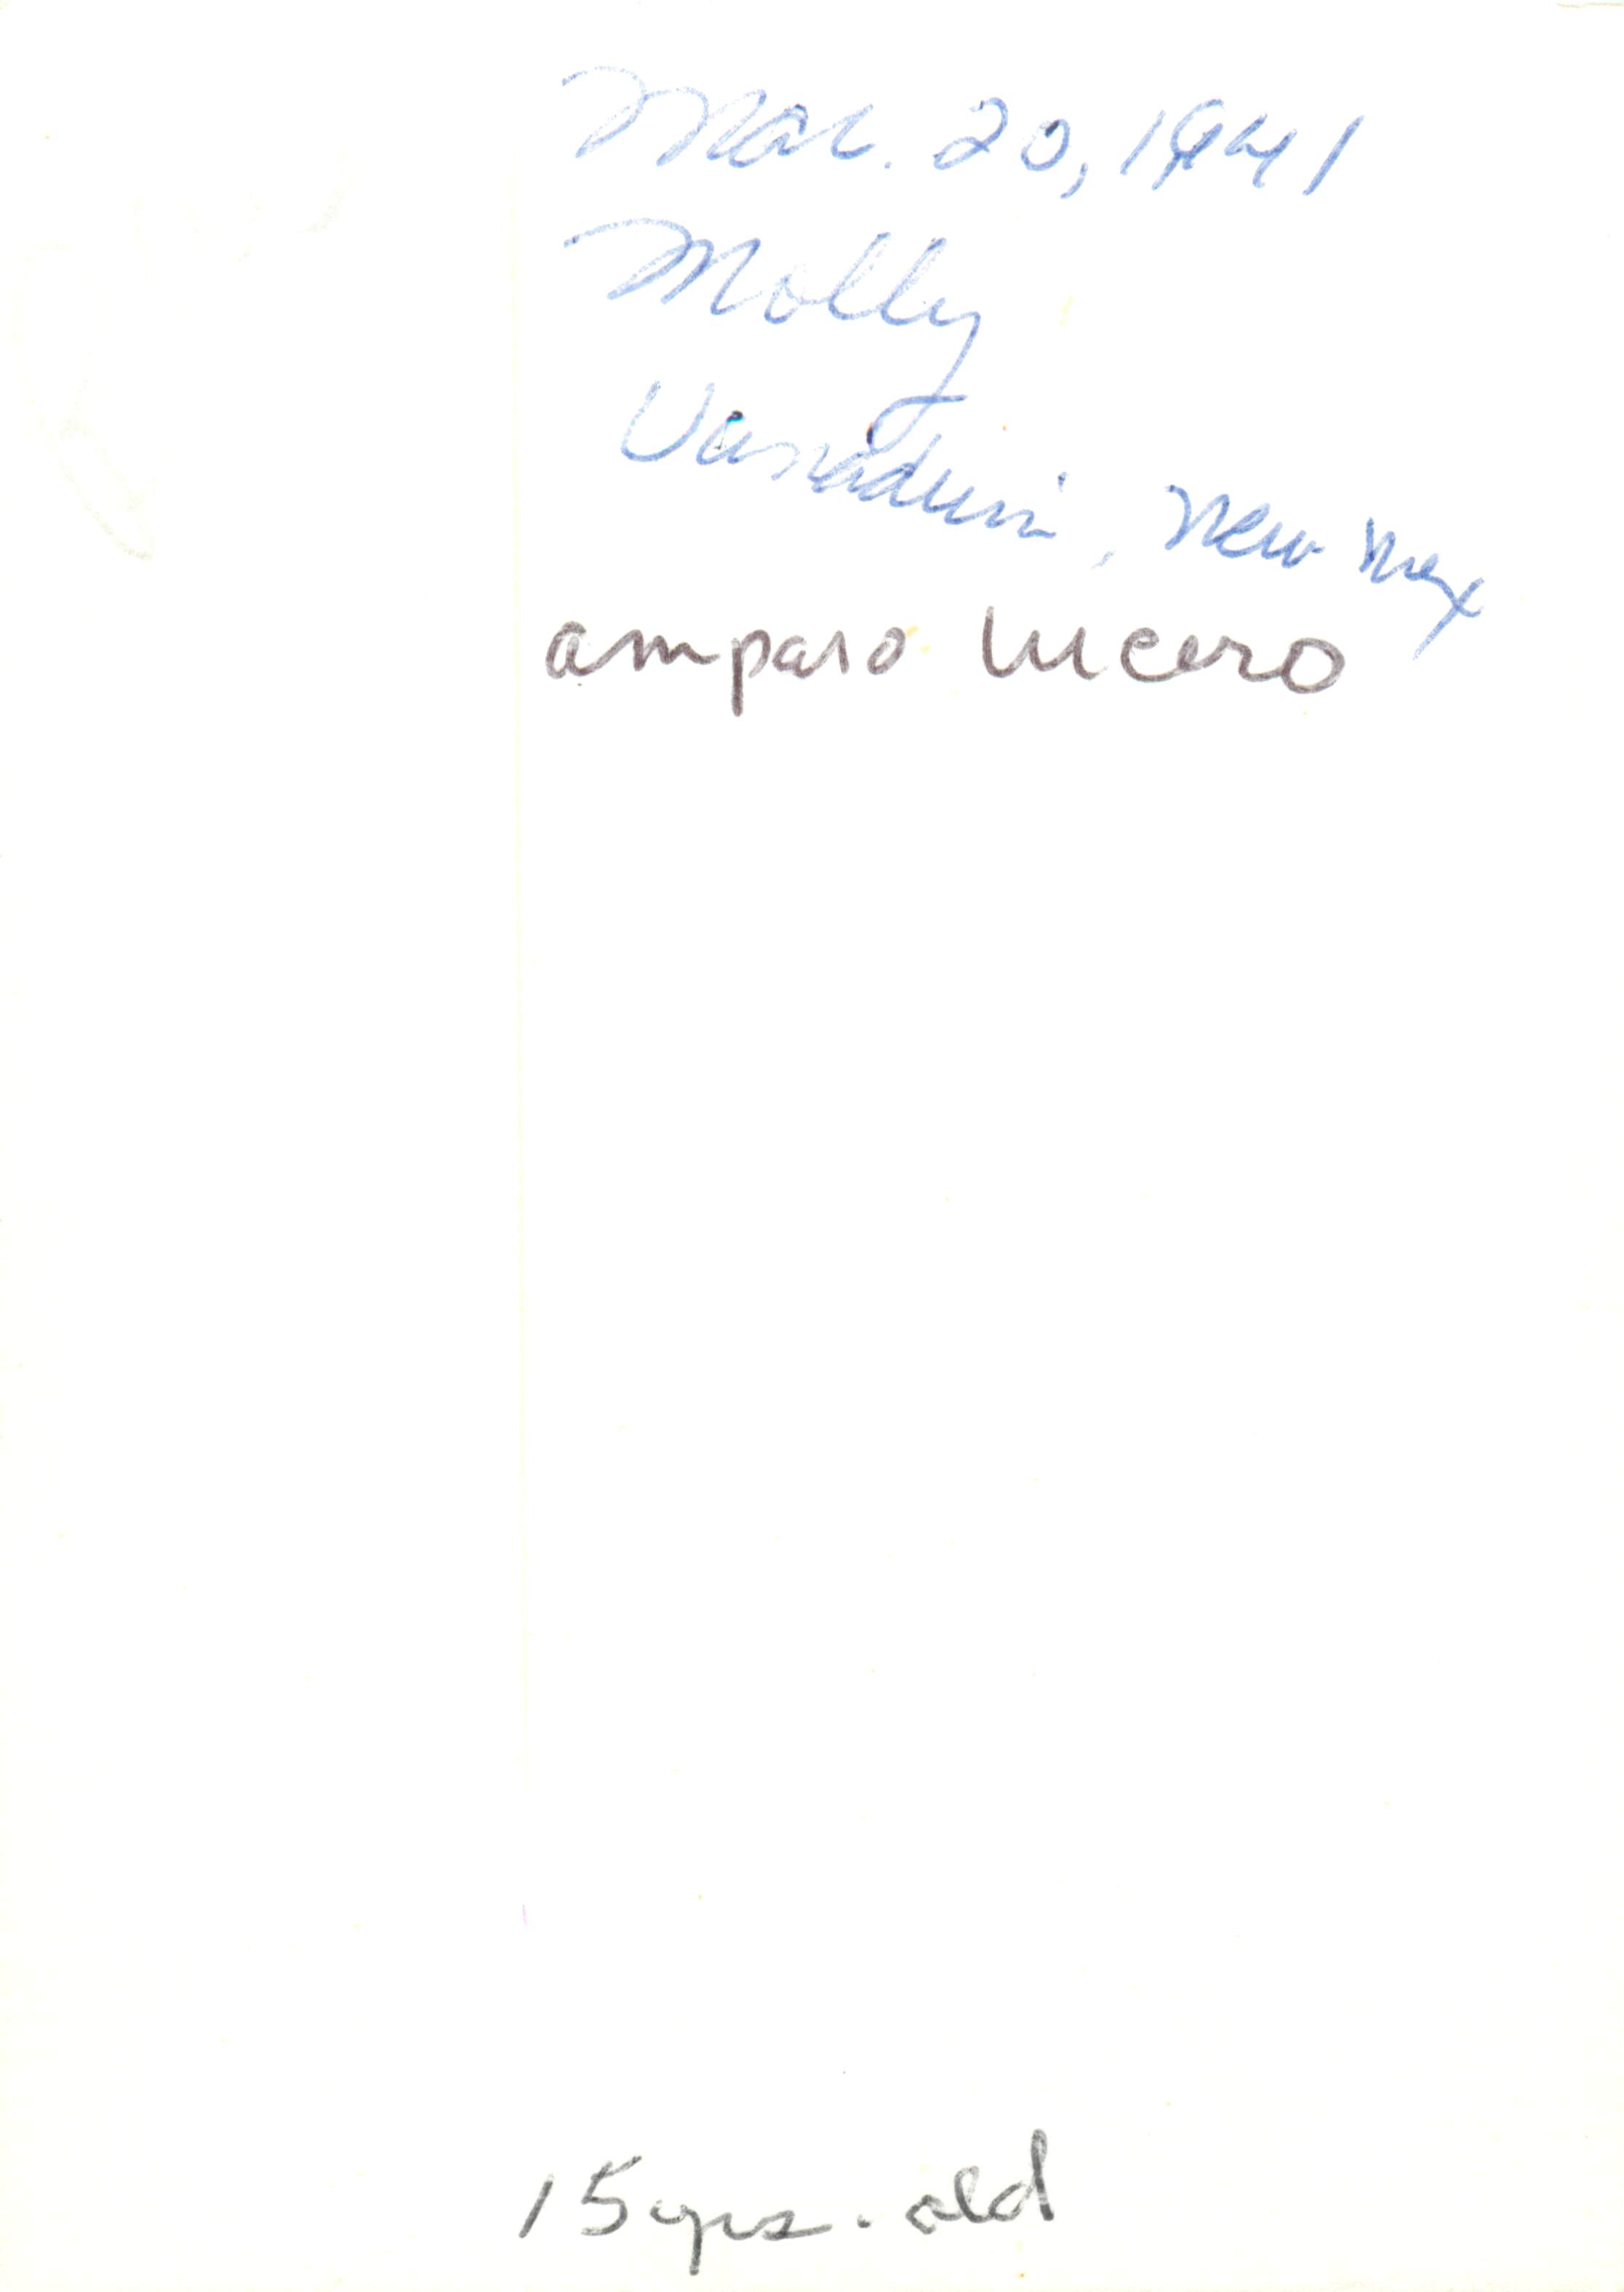 Mar. 20, 1941
Molly
Vanadium, New Mex
amparo lucero
15 yrs. old